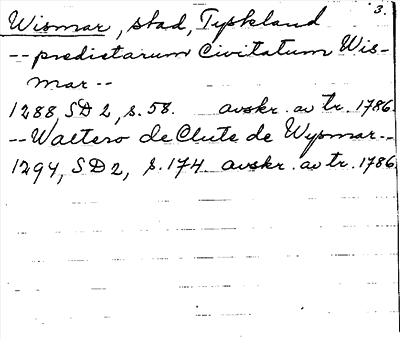 3.
Wismar, stad, Tyskland
-- predictarum Civitatum Wis-
mar --
1288, SD 2, s. 58. avskr. av tr. 1786.
-- Waltero de Clute de Wysmar. --
1294, SD 2, s. 174. avskr. av tr. 1786.